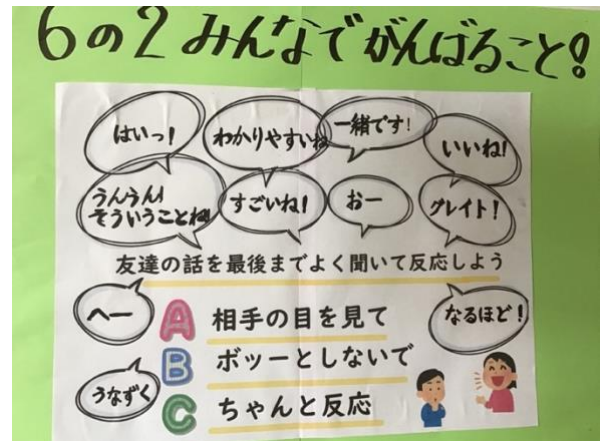 6の2 みんなでがんばること!
はいっ!
わかりやすいね
一緒です!
いいね!
うんうん!
そういうことね!
すごいね!
おー
グレイト!
友達の話を最後までよく聞いて反応しよう
へー
なるほど!
A 相手の目を見て
B ボッーとしないで
うなずく
C ちゃんと反応